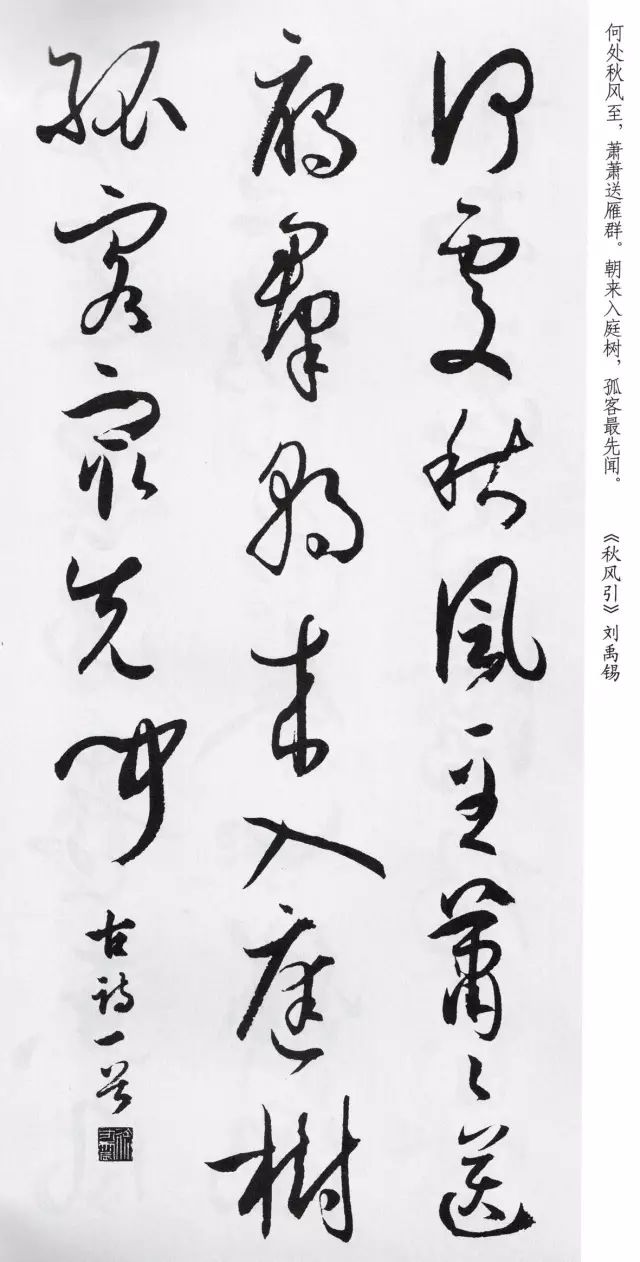 何处秋风至，萧萧送雁群。朝来入庭树，孤客最先闻。 《秋风引》刘禹锡
何處秋風至蕭〻送
雁羣朝来入庭樹
孤客最先聞
古詩一首